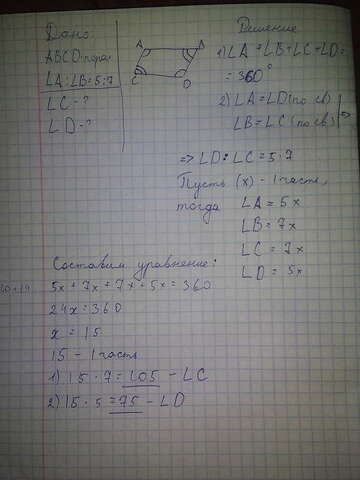 Дано:
ABCD-пара.
∠A:∠B=5:7
∠C-?
∠D-?
A
C
D
Решение
1) ∠A+∠B+∠C+∠D=
=360°
2) ∠A=∠D (по св)
∠B=∠C (по св) =>
=> ∠D:∠C=5:7
Пусть (x) - 1 часть,
тогда ∠A=5x
∠B=7x
∠C=7x
∠D=5x
Составим уравнение:
5x+7x+7x+5x=360
24x=360
x=15
15-1 часть
1) 15·7=105-∠C
2) 15·5=75-∠D